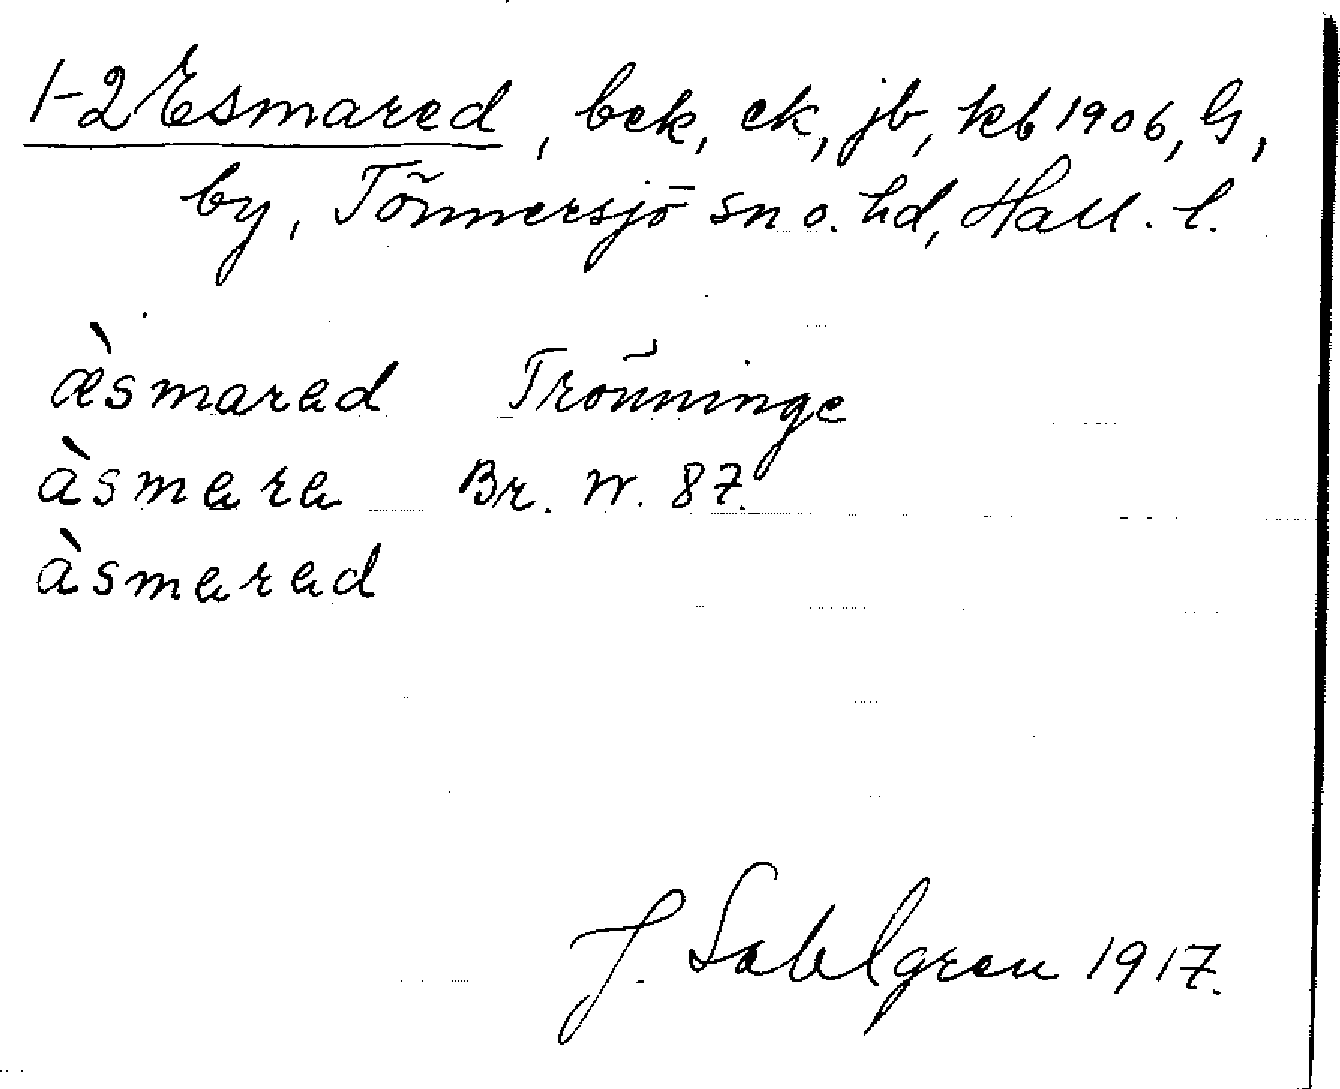 1-2 Esmared, bek, ek, jb, kb 1906, G,
by, Tönnersjö sn o. hd, Hall. l.
æ̀smarad Trönninge
àsmara Br. W. 87.
àsmarad
J. Sahlgren 1917.